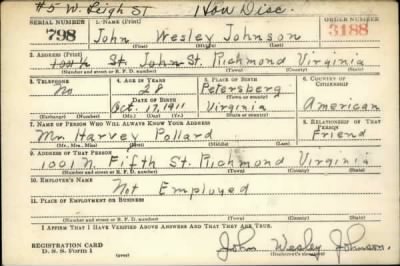 #5 W. Leigh ST Hon Disc.
SERIAL NUMBER 1. NAME (Print) ORDER NUMBER
798 John Wesley Johnson 3188
(First) (Middle) (Last)
2. ADDRESS (Print)
St. John St. Richmond Virginia
(Number and street or R. F. D. number) (Town) (County) (State)
3. TELEPHONE 4. AGE IN YEARS 5. PLACE OF BIRTH 6. COUNTRY OF CITIZENSHIP
No 28 Petersberg
DATE OF BIRTH (Town or county)
Oct. 17, 1911 Virginia American
(Exchange) (Number) (Mo.) (Day) (Yr.) (State or country)
7. NAME OF PERSON WHO WILL ALWAYS KNOW YOUR ADDRESS 8. RELATIONSHIP OF THAT PERSON
Mr. Harvey Pollard Friend
(Mr., Mrs., Miss) (First) (Middle) (Last)
9. ADDRESS OF THAT PERSON
1001 N. Fifth St. Richmond Virginia
(Number and street or R. F. D. number) (Town) (County) (State)
10. EMPLOYER'S NAME
Not Employed
11. PLACE OF EMPLOYMENT OR BUSINESS
(Number and street or R. F. D. number) (Town) (County) (State)
I AFFIRM THAT I HAVE VERIFIED ABOVE ANSWERS AND THAT THEY ARE TRUE.
REGISTRATION CARD
D. S. S. Form 1 John Wesley Johnson.
(Registrant's signature)